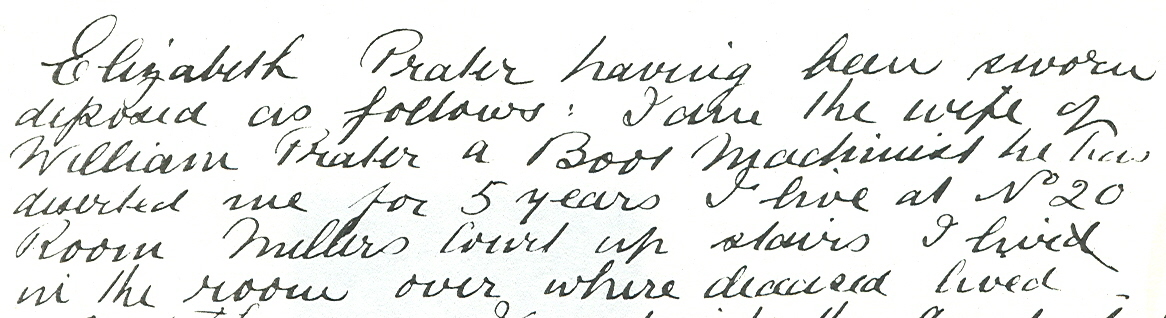 Elizabeth Prater having been sworn
deposed as follows: I am the wife of
William Prater a Boot Machinist he has
deserted me for 5 years I live at No 20
Room Millers Court up stairs I lived
in the room over where deceased lived -